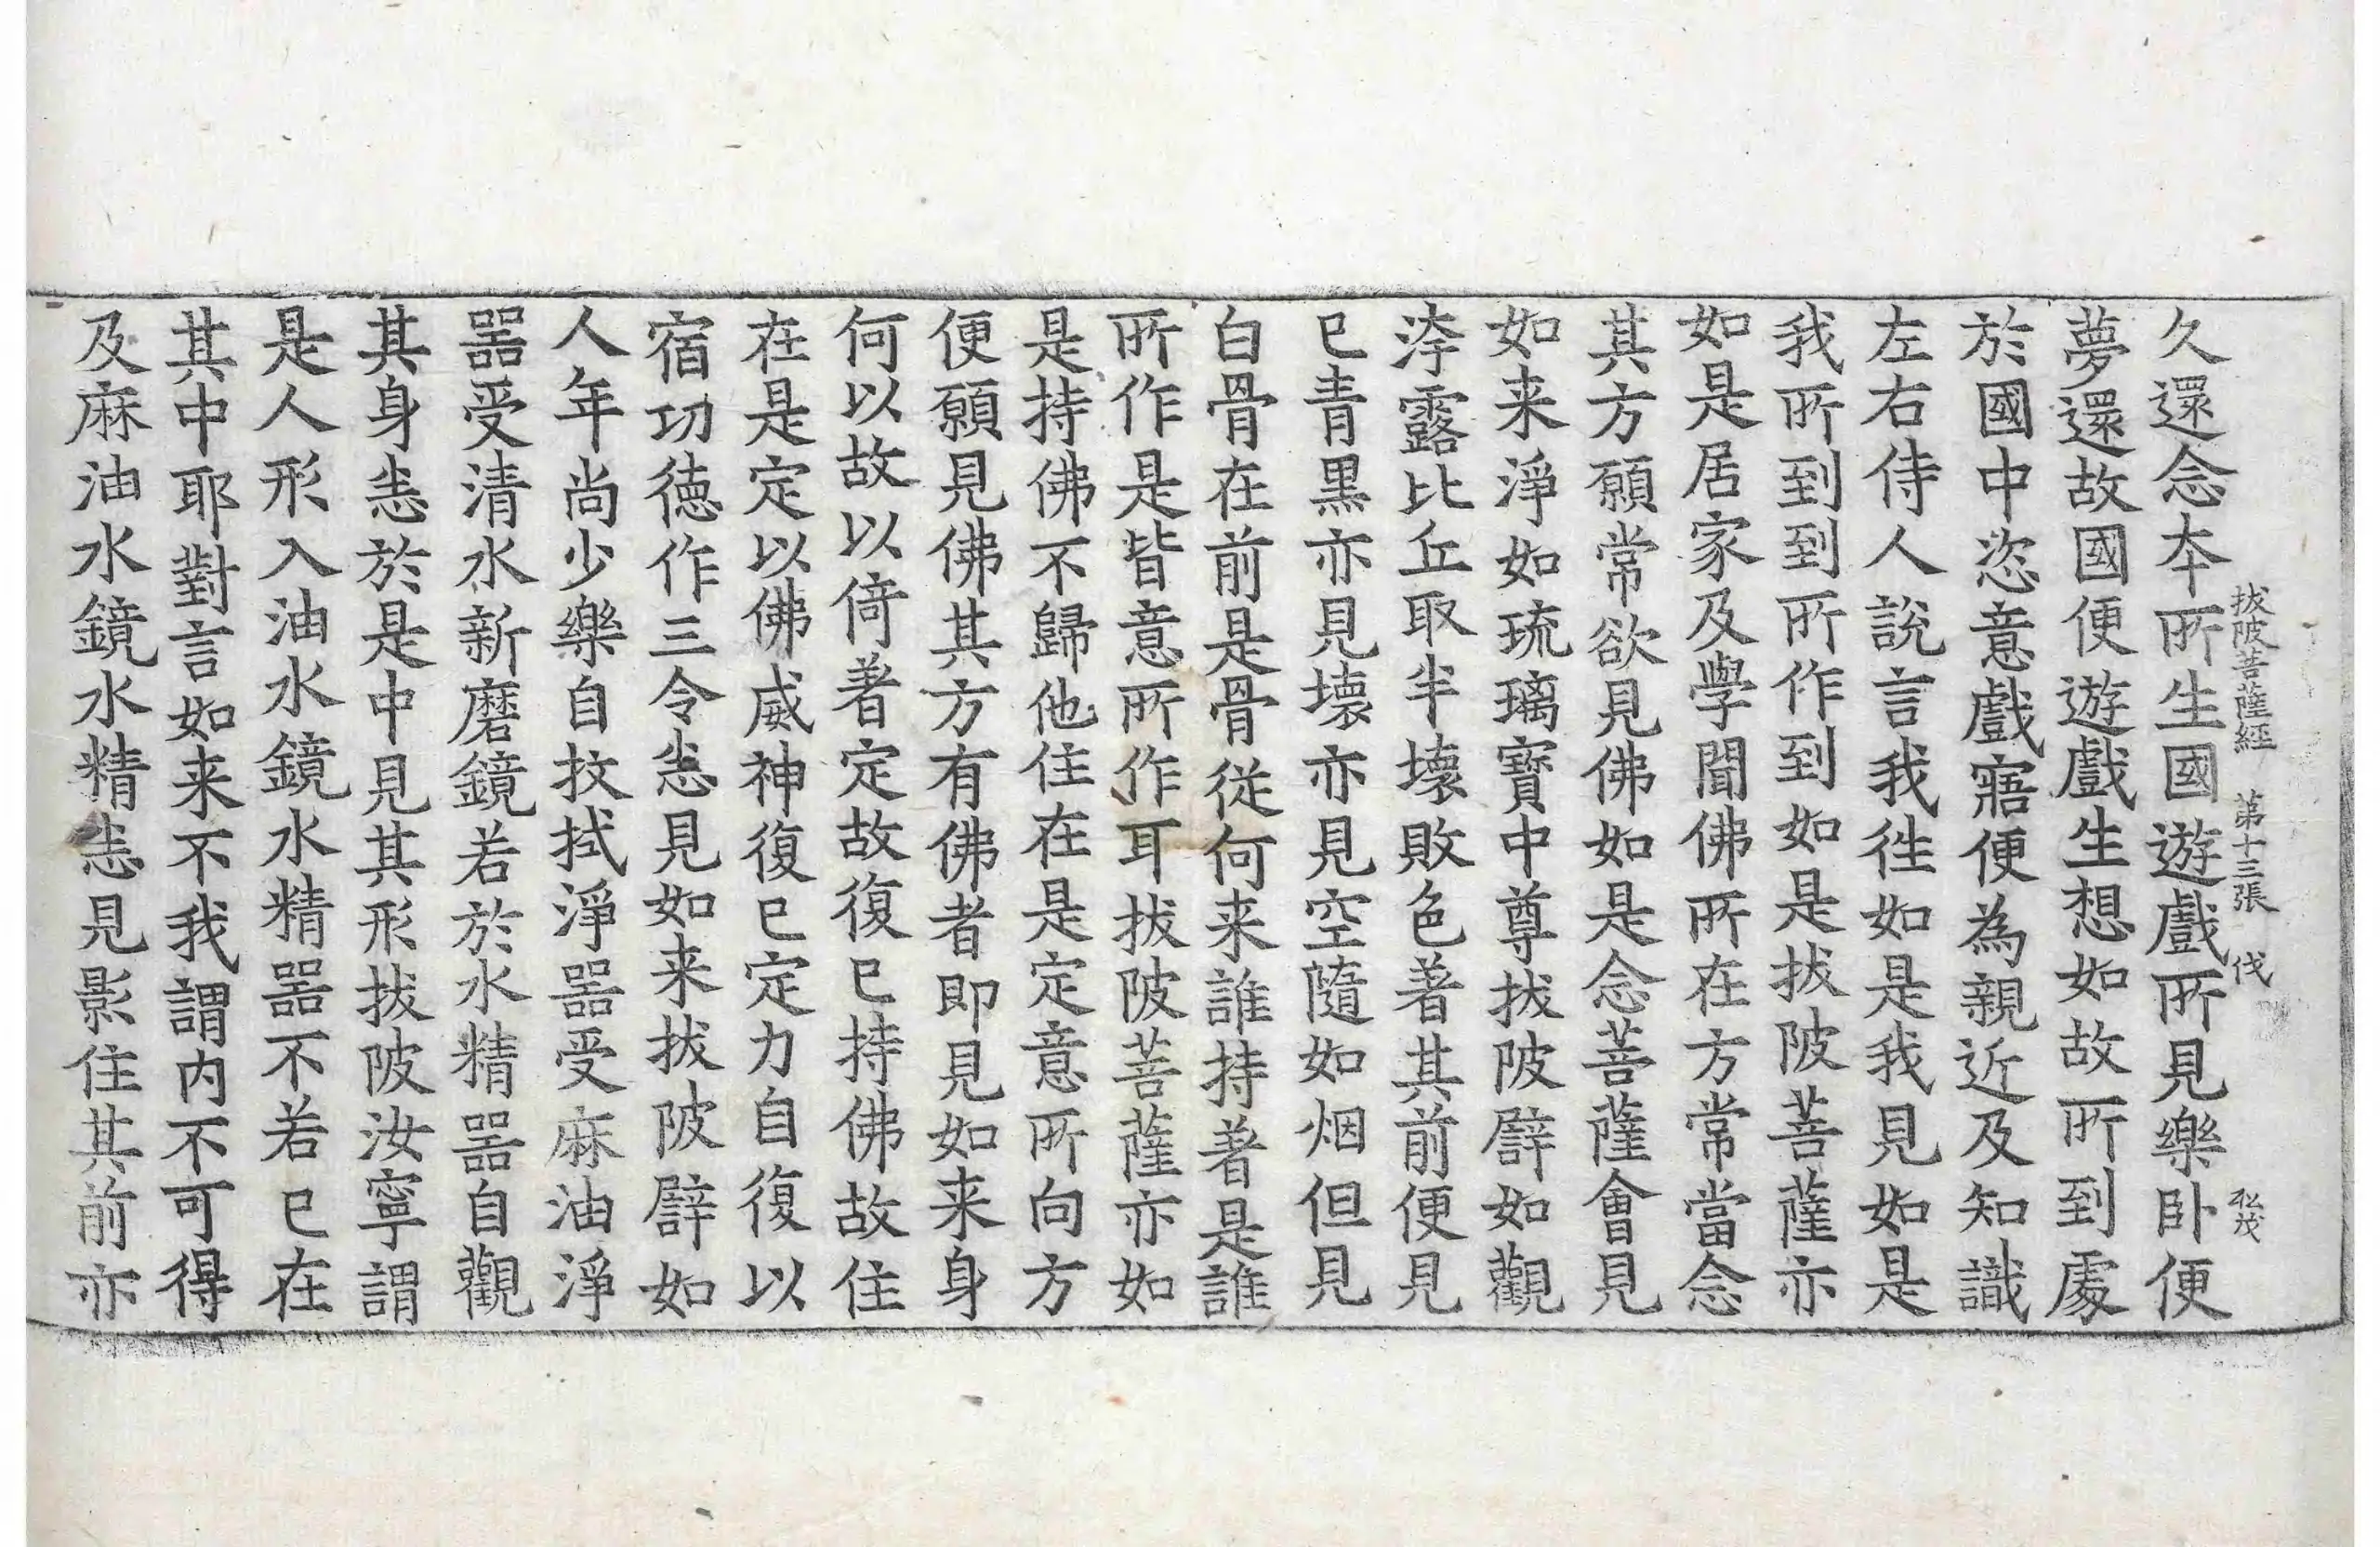 拔陂菩薩經 第十三張 伐 松茂
久還念夲所生國遊戲所見樂卧便
夢還故國便遊戲生想如故所到處
於國中恣意戲寤便為親近及知識
左右侍人說言我徃如是我見如是
我所到到所作到如是拔陂菩薩亦
如是居家及學聞佛所在方常當念
其方願常欲見佛如是念菩薩會見
如来淨如琉璃寶中尊拔陂辟如觀
滓露比丘取半壞敗色著其前便見
已青黒亦見壞亦見空隨如烟但見
白骨在前是骨從何来誰持著是誰
所作是皆意所作耳拔陂菩薩亦如
是持佛不歸他住在是定意所向方
便願見佛其方有佛者即見如来身
何以故以倚著定故復已持佛故住
在是定以佛威神復已定力自復以
宿功德作三令悉見如来拔陂辟如
人年尚少樂自抆拭淨噐受麻油淨
噐受清水新磨鏡若於水精噐自觀
其身悉於是中見其形拔陂汝寧謂
是人形入油水鏡水精噐不若已在
其中耶對言如来不我謂内不可得
及麻油水鏡水水精悉見影住其前亦